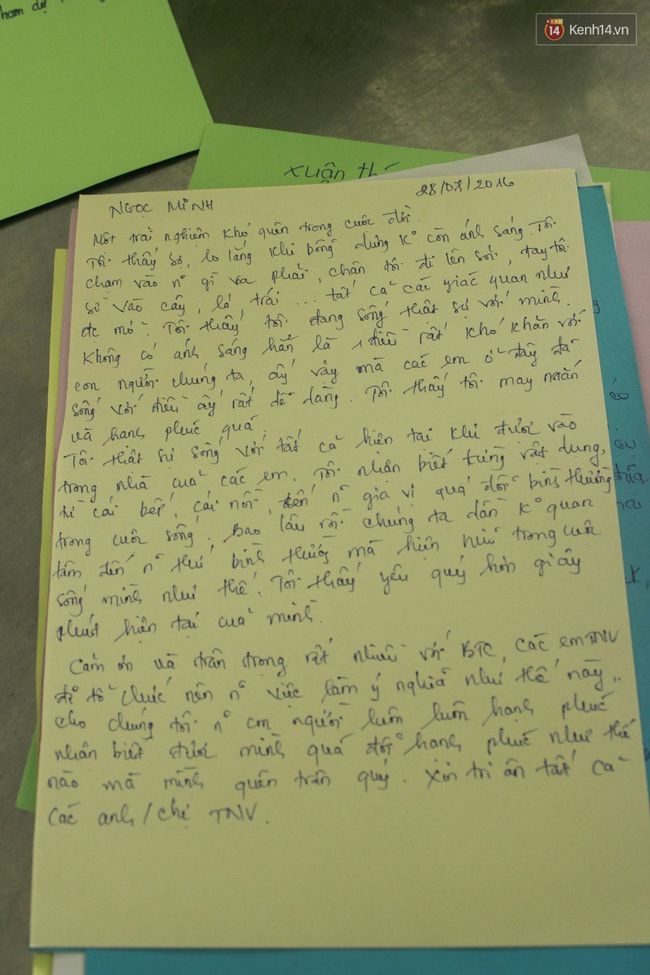 ham dự
14 Kenh14.vn
xuân th
NGỌC MINH 28/07/2016
Một trải nghiệm khó quên trong cuộc đời.
Tôi thấy sợ, lo lắng khi bỗng dưng K° còn ánh sáng. Tôi
chạm vào n~ gì va phải, chân tôi đi lên sỏi, tay tôi
sờ vào cây, lá trái ... tất cả các giác quan như
đc mở. Tôi thấy tôi đang sống thật sự với mình.
Không có ánh sáng hẳn là 1 điều rất khó khăn với
con người chúng ta, ấy vậy mà các em ở đây đã
sống với điều ấy rất dễ dàng. Tôi thấy tôi may mắn
và hạnh phúc quá.
Tôi thật sự sống với tất cả hiện tại khi được vào
trong nhà của các em. Tôi nhận biết từng vật dụng,
từ cái bếp, cái nồi, đến n~ gia vị quá đỗi bình thường
trong cuộc sống. Bao lâu rồi chúng ta dần K° quan
tâm đến n~ thứ bình thường mà hiện hữu trong cuộc
sống mình như thế. Tôi thấy yêu quý hơn giây
phút hiện tại của mình.
Cám ơn và trân trọng rất nhiều với BTC, các em TNV
đã tổ chức nên n~ việc làm ý nghĩa như thế này..
cho chúng tôi n~ con người luôn luôn hạnh phúc
nhận biết được mình quá đỗi hạnh phúc như thế
nào mà mình quên trân quý. Xin tri ân tất cả
các anh/chị TNV.